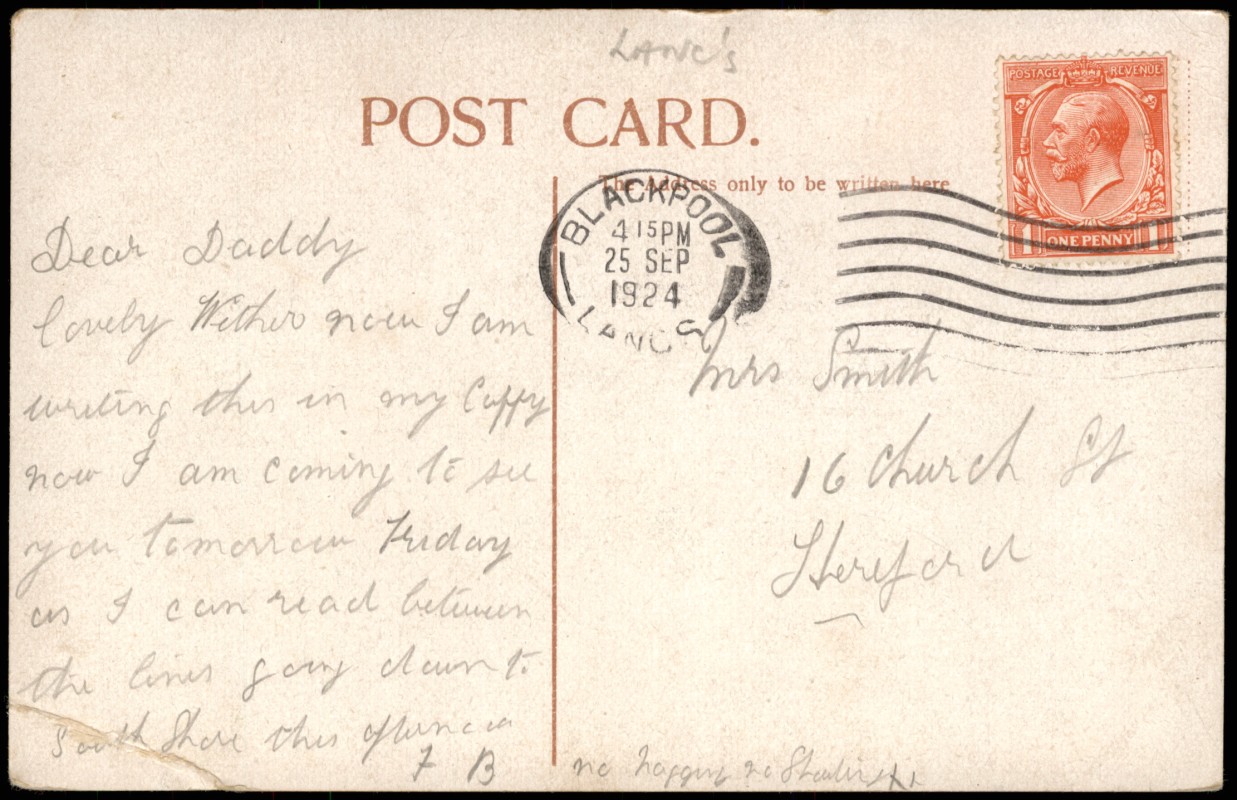 LANC's
POST CARD.
The Address only to be written here
POSTAGE REVENUE
1 ONE PENNY 1
BLACKPOOL
4 15 PM
25 SEP
1924
LANCS
Dear Daddy
lovely now I am
writing this in my
now I am coming to see
you tomorrow Friday
as I can read between
the lines going down to
South Shore this afternoon
F B
Mrs Smith
16 Church St
Hereford
no no